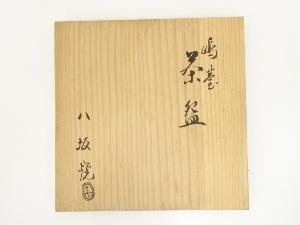 嶋臺
茶盌
八坂焼